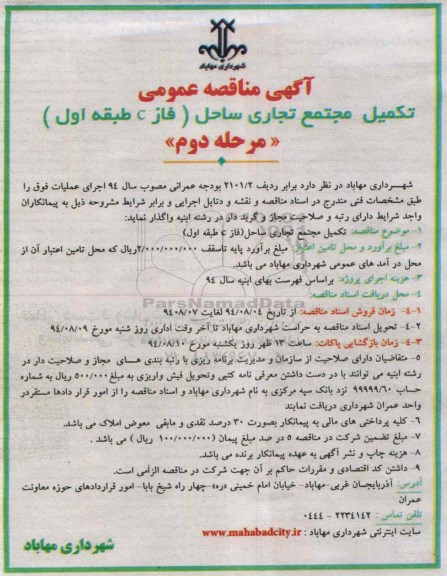 شهرداری مهاباد
آگهی مناقصه عمومی
تکمیل مجتمع تجاری ساحل ( فاز c طبقه اول )
« مرحله دوم»
شهرداری مهاباد در نظر دارد برابر ردیف ۲۱۰۱/۲ بودجه عمرانی مصوب سال ۹۴ اجرای عملیات فوق را
طبق مشخصات فنی مندرج در اسناد مناقصه و نقشه و دتایل اجرایی و برابر شرایط مشروحه ذیل به پیمانکاران
واجد شرایط دارای رتبه و صلاحیت مجاز و گرید دار در رشته ابنیه واگذار نماید:
۱- موضوع مناقصه: تکمیل مجتمع تجاری ساحل(فاز c طبقه اول)
۲- مبلغ برآورد و محل تامین اعتبار: مبلغ برآورد پایه تاسقف ۲/۰۰۰/۰۰۰/۰۰۰ریال که محل تامین اعتبار آن از
محل در آمد های عمومی شهرداری مهاباد می باشد.
۳- هزینه اجرای پروژه: براساس فهرست بهای ابنیه سال ۹۴
۴- محل دریافت اسناد مناقصه:
۴-۱- زمان فروش اسناد مناقصه: از تاریخ ۹۴/۰۸/۰۴ لغایت ۹۴۰۸/۰۷
۴-۲- تحویل اسناد مناقصه به حراست شهرداری مهاباد تا آخر وقت اداری روز شنبه مورخ ۹۴/۰۸/۰۹
۴-۳- زمان بازگشایی پاکات: ساعت ۱۳ ظهر روز یکشنبه مورخ ۹۴/۰۸/۱۰
۵- متقاضیان دارای صلاحیت از سازمان و مدیریت برنامه ریزی با رتبه بندی های مجاز و صلاحیت دار در
رشته ابنیه می توانند با در دست داشتن معرفی نامه کتبی وتحویل فیش واریزی به مبلغ ۵۰۰/۰۰۰ ریال به شماره
حساب ۹۹۹۹۹/۶۰ نزد بانک سپه مرکزی به نام شهرداری مهاباد و اسناد مناقصه را از امور قرار دادها مستقردر
واحد عمران شهرداری دریافت نمایند
۶- کلیه پرداختی های مالی به پیمانکار بصورت ۳۰ درصد نقدی و مابقی معوض املاک می باشد.
۷- مبلغ تضمین شرکت در مناقصه ۵ در صد مبلغ پیمان (۱۰۰/۰۰۰/۰۰۰ ریال ) می باشد .
۸- هزینه چاپ و نشر آگهی به عهده پیمانکار برنده می باشد.
۹- داشتن کد اقتصادی و مقررات حاکم بر آن جهت شرکت در مناقصه الزامی است.
آدرس: آذربایجان غربی-مهاباد- خیابان امام خمینی «ره»-چهار راه شیخ بابا- امور قراردادهای حوزه معاونت
عمران
تلفن تماس : ۲۲۳۴۱۴۲ - ۰۴۴۴
سایت اینترنتی شهرداری مهاباد : www.mahabadcity.ir
شهرداری مهاباد
ParsNamadData